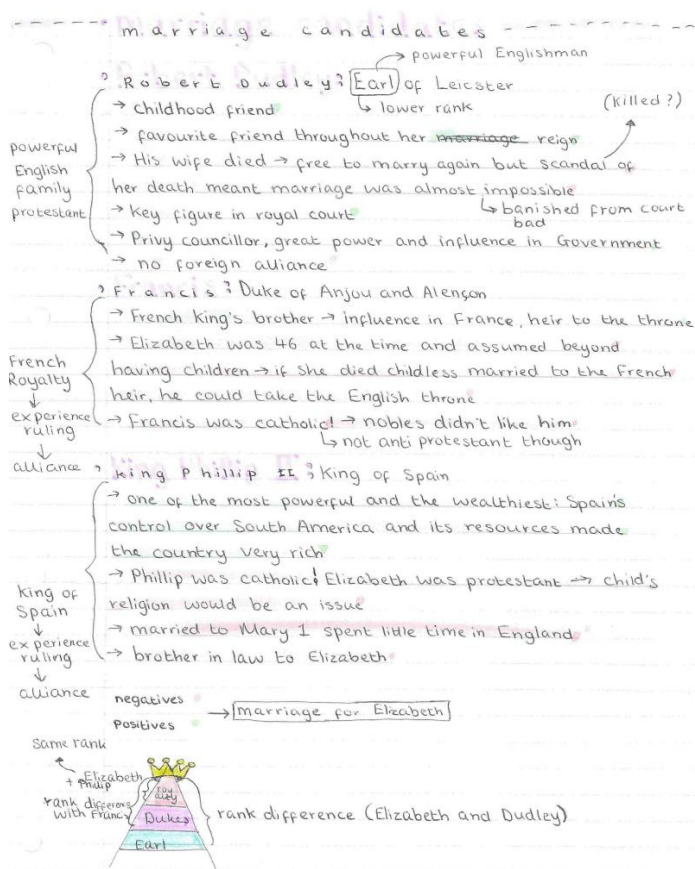 marriage candidates
→ powerful Englishman
Robert Dudley: Earl of Leicster
↳ lower rank
(killed?)
→ childhood friend
→ favourite friend throughout her marriage reign
→ His wife died → free to marry again but scandal of
her death meant marriage was almost impossible
↳ banished from court
bad
→ Key figure in royal court
→ Privy councillor, great power and influence in Government
→ no foreign alliance
powerful
English
family
protestant
Francis: Duke of Anjou and Alençon
→ French King's brother → influence in France, heir to the throne
→ Elizabeth was 46 at the time and assumed beyond
having children → if she died childless married to the French
heir, he could take the English throne
→ Francis was catholic! → nobles didn't like him
↳ not anti protestant though
French
Royalty
↓
experience
ruling
↓
alliance
King Phillip II: King of Spain
→ one of the most powerful and the wealthiest: Spain's
control over South America and its resources made
the country very rich
→ Phillip was catholic! Elizabeth was protestant → child's
religion would be an issue
→ married to Mary 1 spent little time in England
→ brother in law to Elizabeth
King of
Spain
↓
experience
ruling
↓
alliance
negatives
positives
→ marriage for Elizabeth
same rank
Elizabeth
+ Philip
rank differens
with Franc
royalty
Dukes
Earl
rank difference (Elizabeth and Dudley)